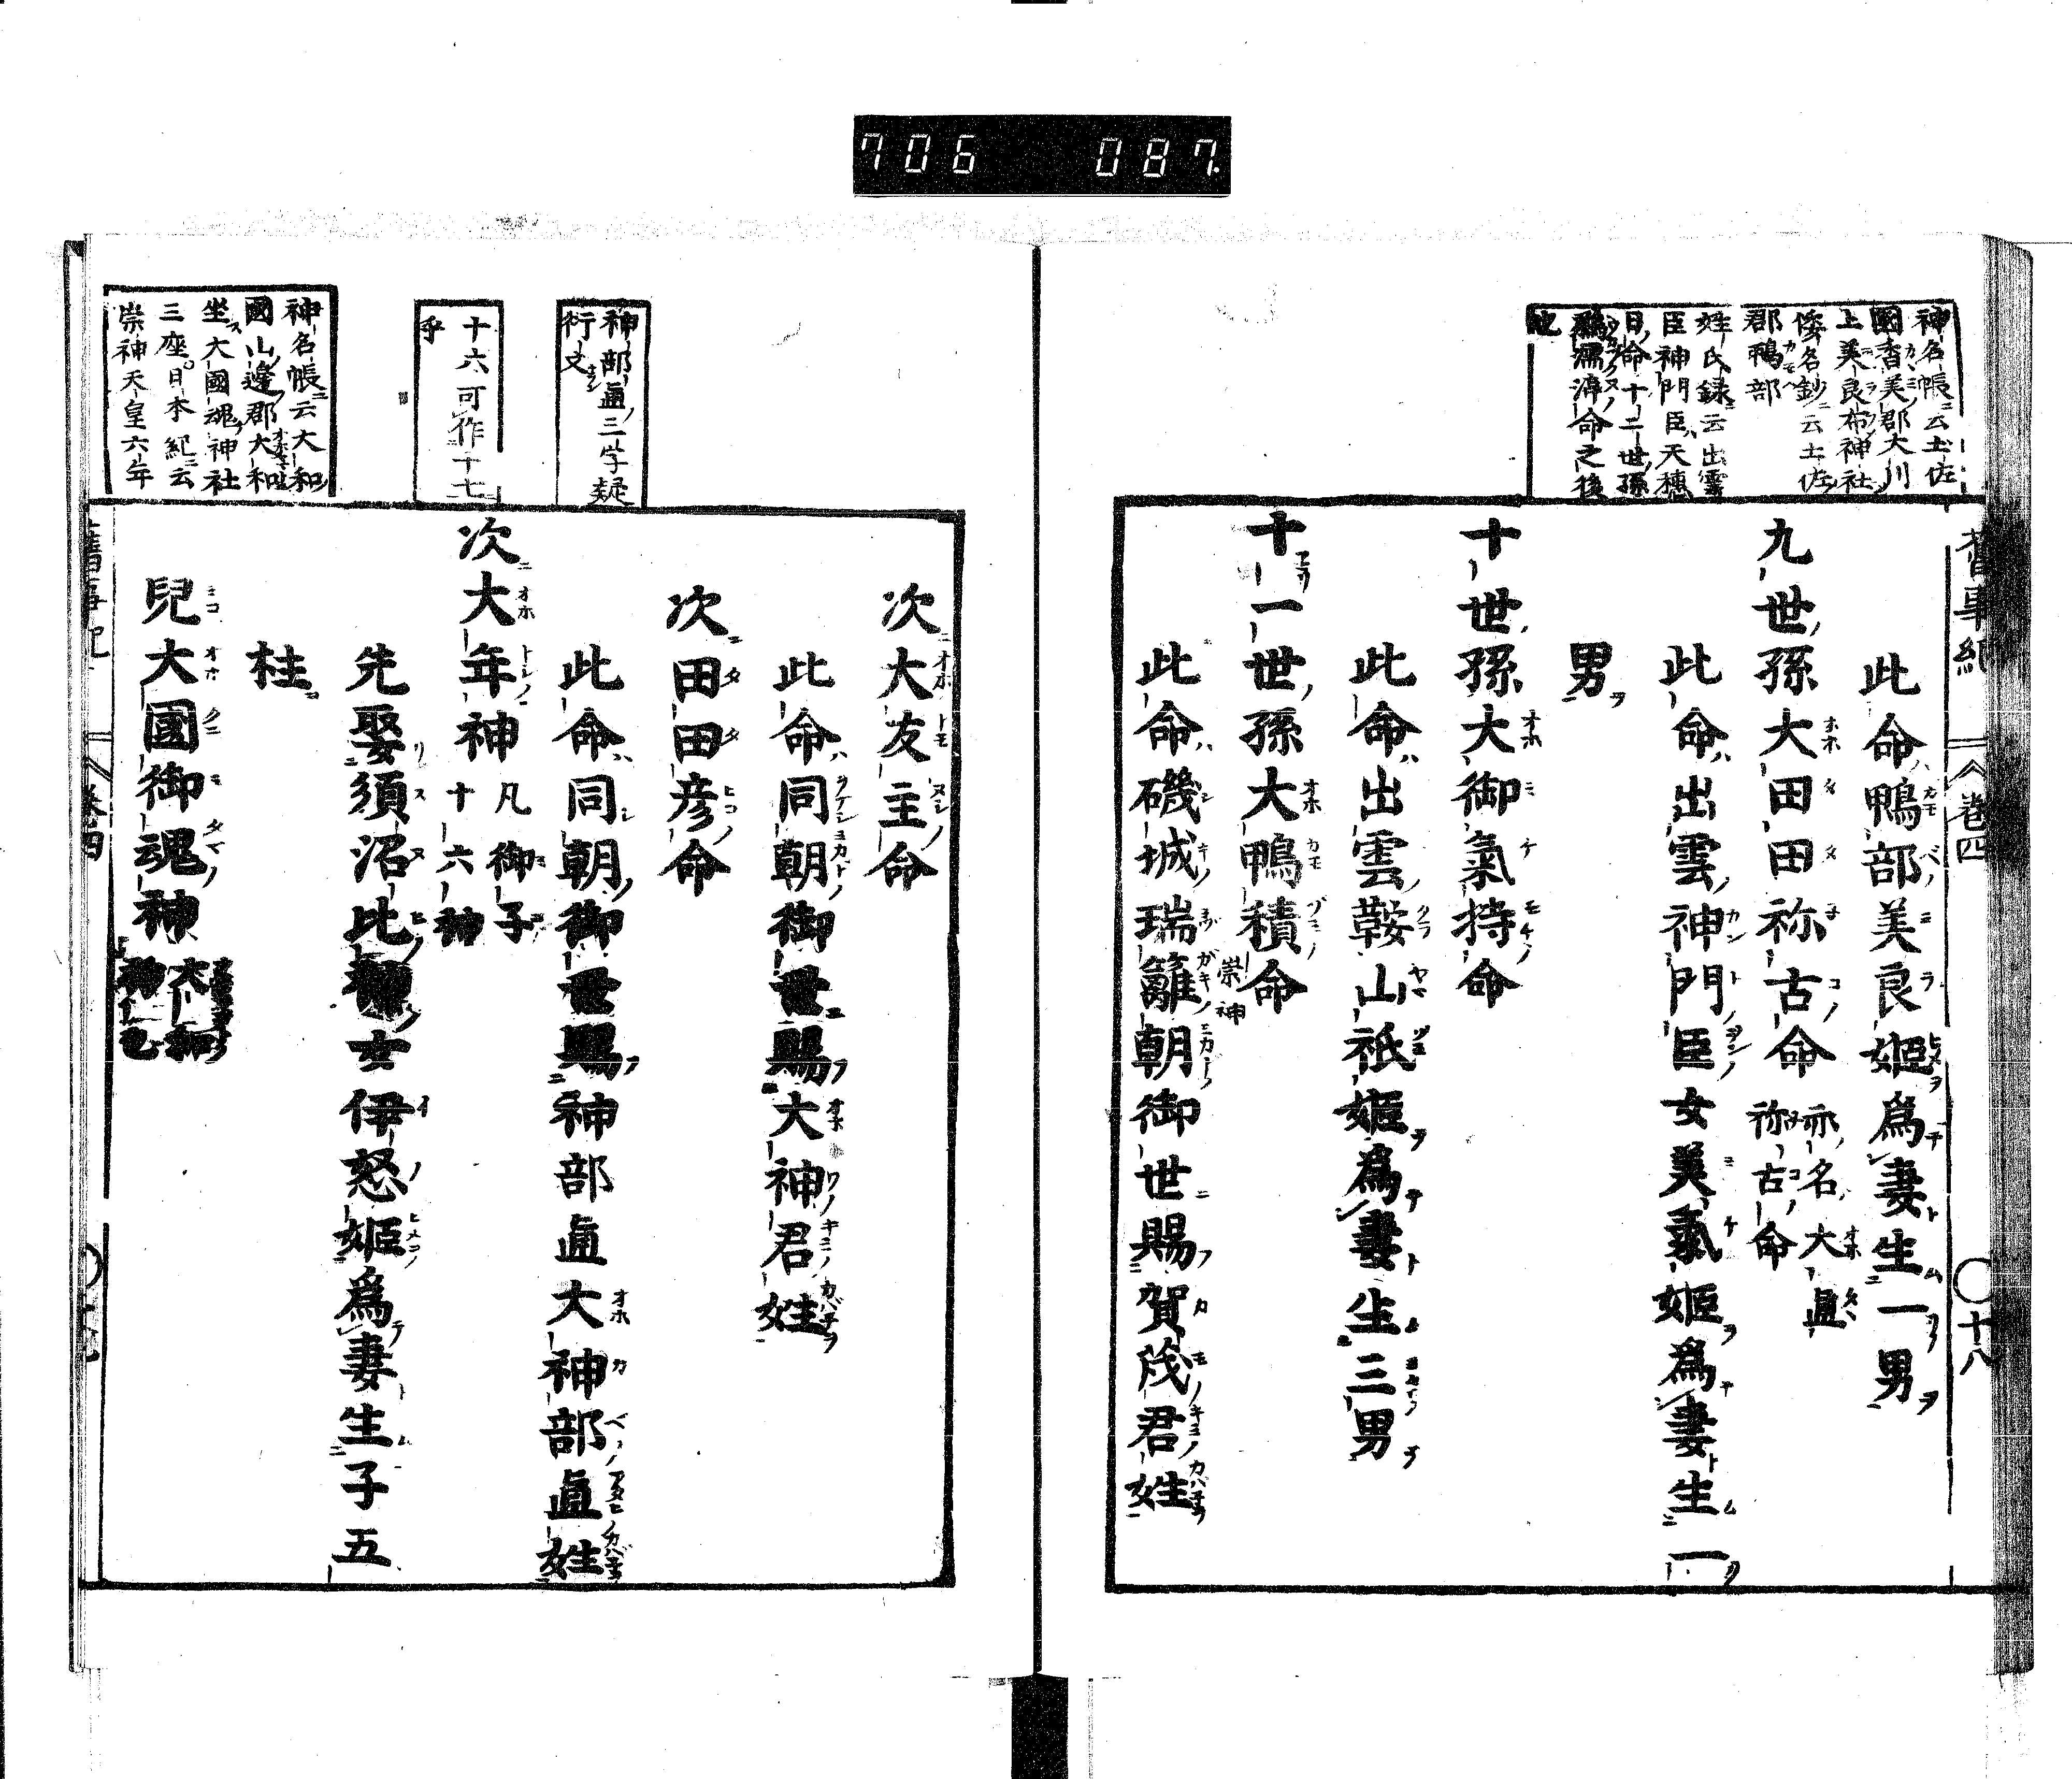 706 087.
神名帳云土佐
國香美郡大川
上美良布神社
倭名鈔云土佐
郡鴨部
姓氏録云出雲
臣神門臣天穗
日命十二世孫
鵜濡渟命之後
也
舊事紀 卷四 〇十八
此命鴨部美良姬爲妻生一男
九世孫大田田祢古命 亦名大直祢古命
此命出雲神門臣女美氣姬爲妻生一
男
十世孫大御氣持命
此命出雲鞍山祇姬爲妻生三男
十一世孫大鴨積命
此命磯城瑞籬朝御世賜賀茂君姓
崇神
神部直三字疑
衍文
十六可作十七
乎
神名帳云大和
國山邊郡大和
坐大國魂神社
三座。日本紀云
崇神天皇六年
次大友主命
此命同朝御世賜大神君姓
次田田彦命
此命同朝御世賜神部直大神部直姓
次大年神 凡御子十六神
先娶須沼比神女伊怒姬爲妻生子五
柱
兒大國御魂神 大和神也